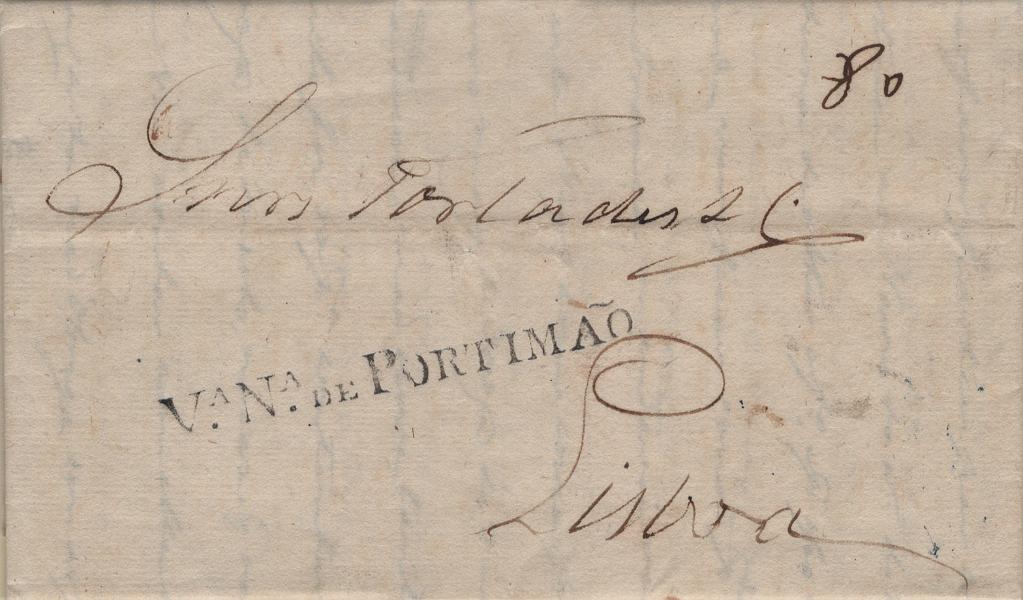 80
Snrs Torlades & C.
V.ᴬ N.ᴬ DE PORTIMÃO
Lisboa